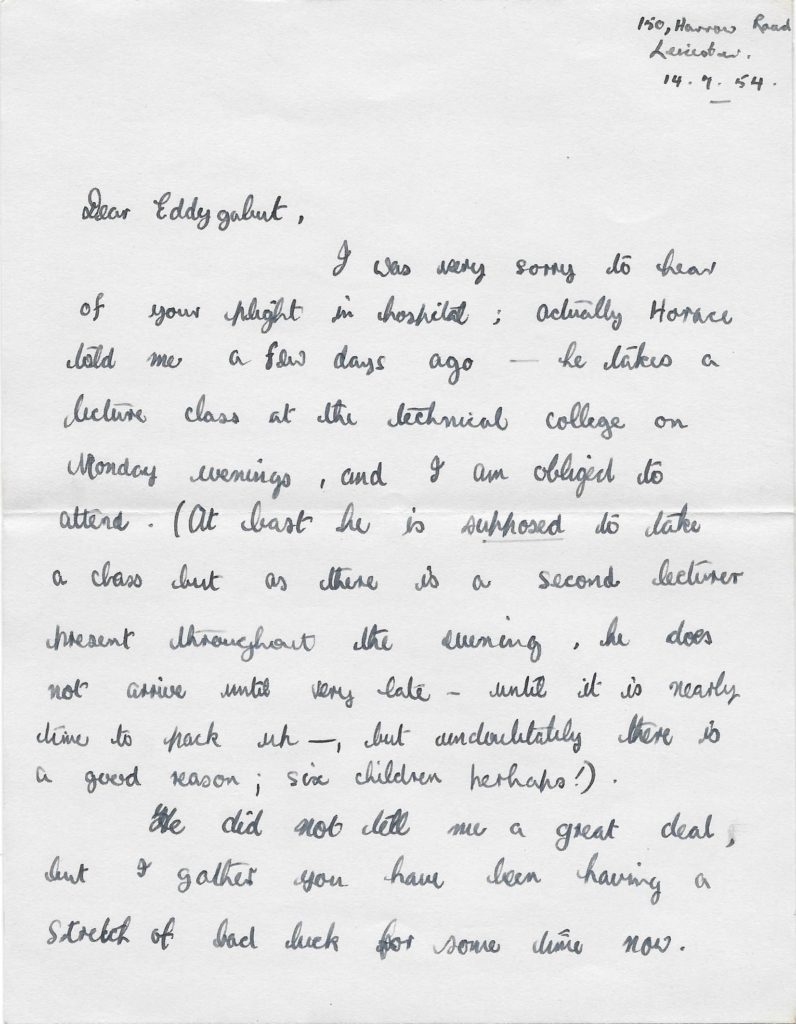 150, Harrow Road
Leicester.
14. 7. 54.
Dear Eddygabut,
I was very sorry to hear
of your plight in hospital ; actually Horace
told me a few days ago — he takes a
lecture class at the technical college on
Monday evenings, and I am obliged to
attend. (At least he is supposed to take
a class but as there is a second lecturer
present throughout the evening, he does
not arrive until very late – until it is nearly
time to pack up —, but undoubtably there is
a good reason ; six children perhaps!).
He did not tell me a great deal,
but I gather you have been having a
stretch of bad luck for some time now.